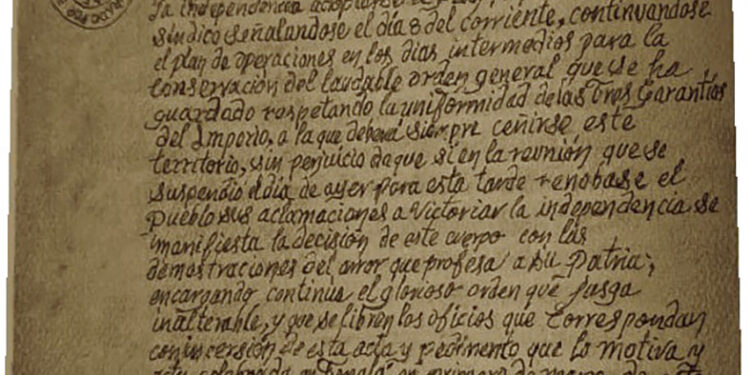 la independencia
sindico señalandose el dia 8 del corriente, continuandose
el plan de operaciones en los dias intermedios para la
conservación del laudable orden general que se ha
guardado respetando la uniformidad de las Tres Garantias
del Imperio, a la que deberá siempre ceñirse este
territorio, sin perjuicio de que si en la reunión que se
suspendio el dia de ayer para esta tarde renobase el
Pueblo sus aclamaciones a Victoriar la independencia se
manifiesta la decisión de este cuerpo con las
demostraciones del amor que profesa a su Patria;
encargando continue el glorioso orden que jusga
inalterable, y que se libren los oficios que correspondan
con incersión de esta acta y pedimento que lo motiva y
en primero de